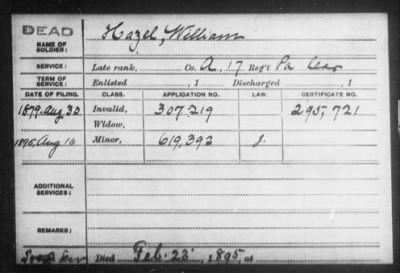 DEAD
NAME OF SOLDIER: Hazel, William
SERVICE: Late rank, Co. A, 17 Reg't Pa Cav
TERM OF SERVICE: Enlisted , 1 Discharged , 1
DATE OF FILING. CLASS. APPLICATION NO. LAW. CERTIFICATE NO.
1879. Aug 30 Invalid, 307.219 295,721
Widow,
1895, Aug 16 Minor, 619,392
ADDITIONAL SERVICES:
REMARKS:
Died Feb. 23, 1895, at